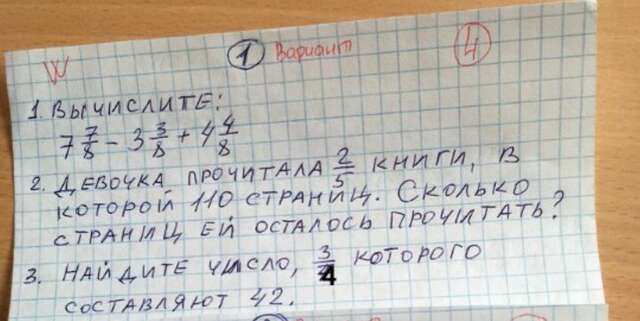 W 1 Вариант 4
1. Вычислите:
7 7/8 - 3 3/8 + 4 4/8
2. Девочка прочитала 2/5 книги, в
которой 110 страниц. Сколько
страниц ей осталось прочитать?
3. Найдите число, 3/4 которого
составляют 42.